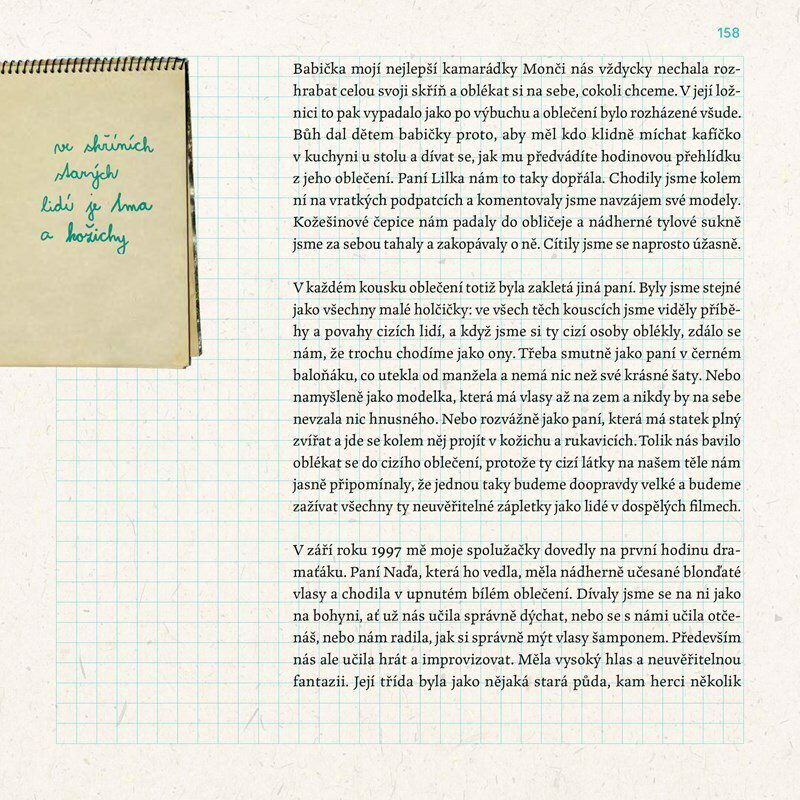 158
ve skříních
starých
lidí je tma
a kožichy
Babička mojí nejlepší kamarádky Monči nás vždycky nechala roz-
hrabat celou svoji skříň a oblékat si na sebe, cokoli chceme. V její lož-
nici to pak vypadalo jako po výbuchu a oblečení bylo rozházené všude.
Bůh dal dětem babičky proto, aby měl kdo klidně míchat kafíčko
v kuchyni u stolu a dívat se, jak mu předvádíte hodinovou přehlídku
z jeho oblečení. Paní Lilka nám to taky dopřála. Chodily jsme kolem
ní na vratkých podpatcích a komentovaly jsme navzájem své modely.
Kožešinové čepice nám padaly do obličeje a nádherné tylové sukně
jsme za sebou tahaly a zakopávaly o ně. Cítily jsme se naprosto úžasně.
V každém kousku oblečení totiž byla zakletá jiná paní. Byly jsme stejné
jako všechny malé holčičky: ve všech těch kouscích jsme viděly příbě-
hy a povahy cizích lidí, a když jsme si ty cizí osoby oblékly, zdálo se
nám, že trochu chodíme jako ony. Třeba smutně jako paní v černém
baloňáku, co utekla od manžela a nemá nic než své krásné šaty. Nebo
namyšleně jako modelka, která má vlasy až na zem a nikdy by na sebe
nevzala nic hnusného. Nebo rozvážně jako paní, která má statek plný
zvířat a jde se kolem něj projít v kožichu a rukavicích. Tolik nás bavilo
oblékat se do cizího oblečení, protože ty cizí látky na našem těle nám
jasně připomínaly, že jednou taky budeme doopravdy velké a budeme
zažívat všechny ty neuvěřitelné zápletky jako lidé v dospělých filmech.
V září roku 1997 mě moje spolužačky dovedly na první hodinu dra-
maťáku. Paní Naďa, která ho vedla, měla nádherně učesané blonďaté
vlasy a chodila v upnutém bílém oblečení. Dívaly jsme se na ni jako
na bohyni, ať už nás učila správně dýchat, nebo se s námi učila otče-
náš, nebo nám radila, jak si správně mýt vlasy šamponem. Především
nás ale učila hrát a improvizovat. Měla vysoký hlas a neuvěřitelnou
fantazii. Její třída byla jako nějaká stará půda, kam herci několik